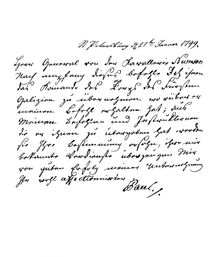 St. Petersburg d. 8ten Januar 1799.
Herr General von der Kavallerie Numsen
Nach Empfang dieses Befehls Ihnen
das Komando des Korps des Fürsten
Galizin zu übernehmen wo er über
meinen Befehl erhalten hat, aus
Meinen Befehlen und Instruktionen
die er Ihnen zu übergeben hat werden
Sie Ihre Bestimmung ersehen, Ihre mir
bekannte Verdienste überzeugen Mich
von guten Erfolg meiner Unternehmung
Ihr wohl affectionirter
Paul